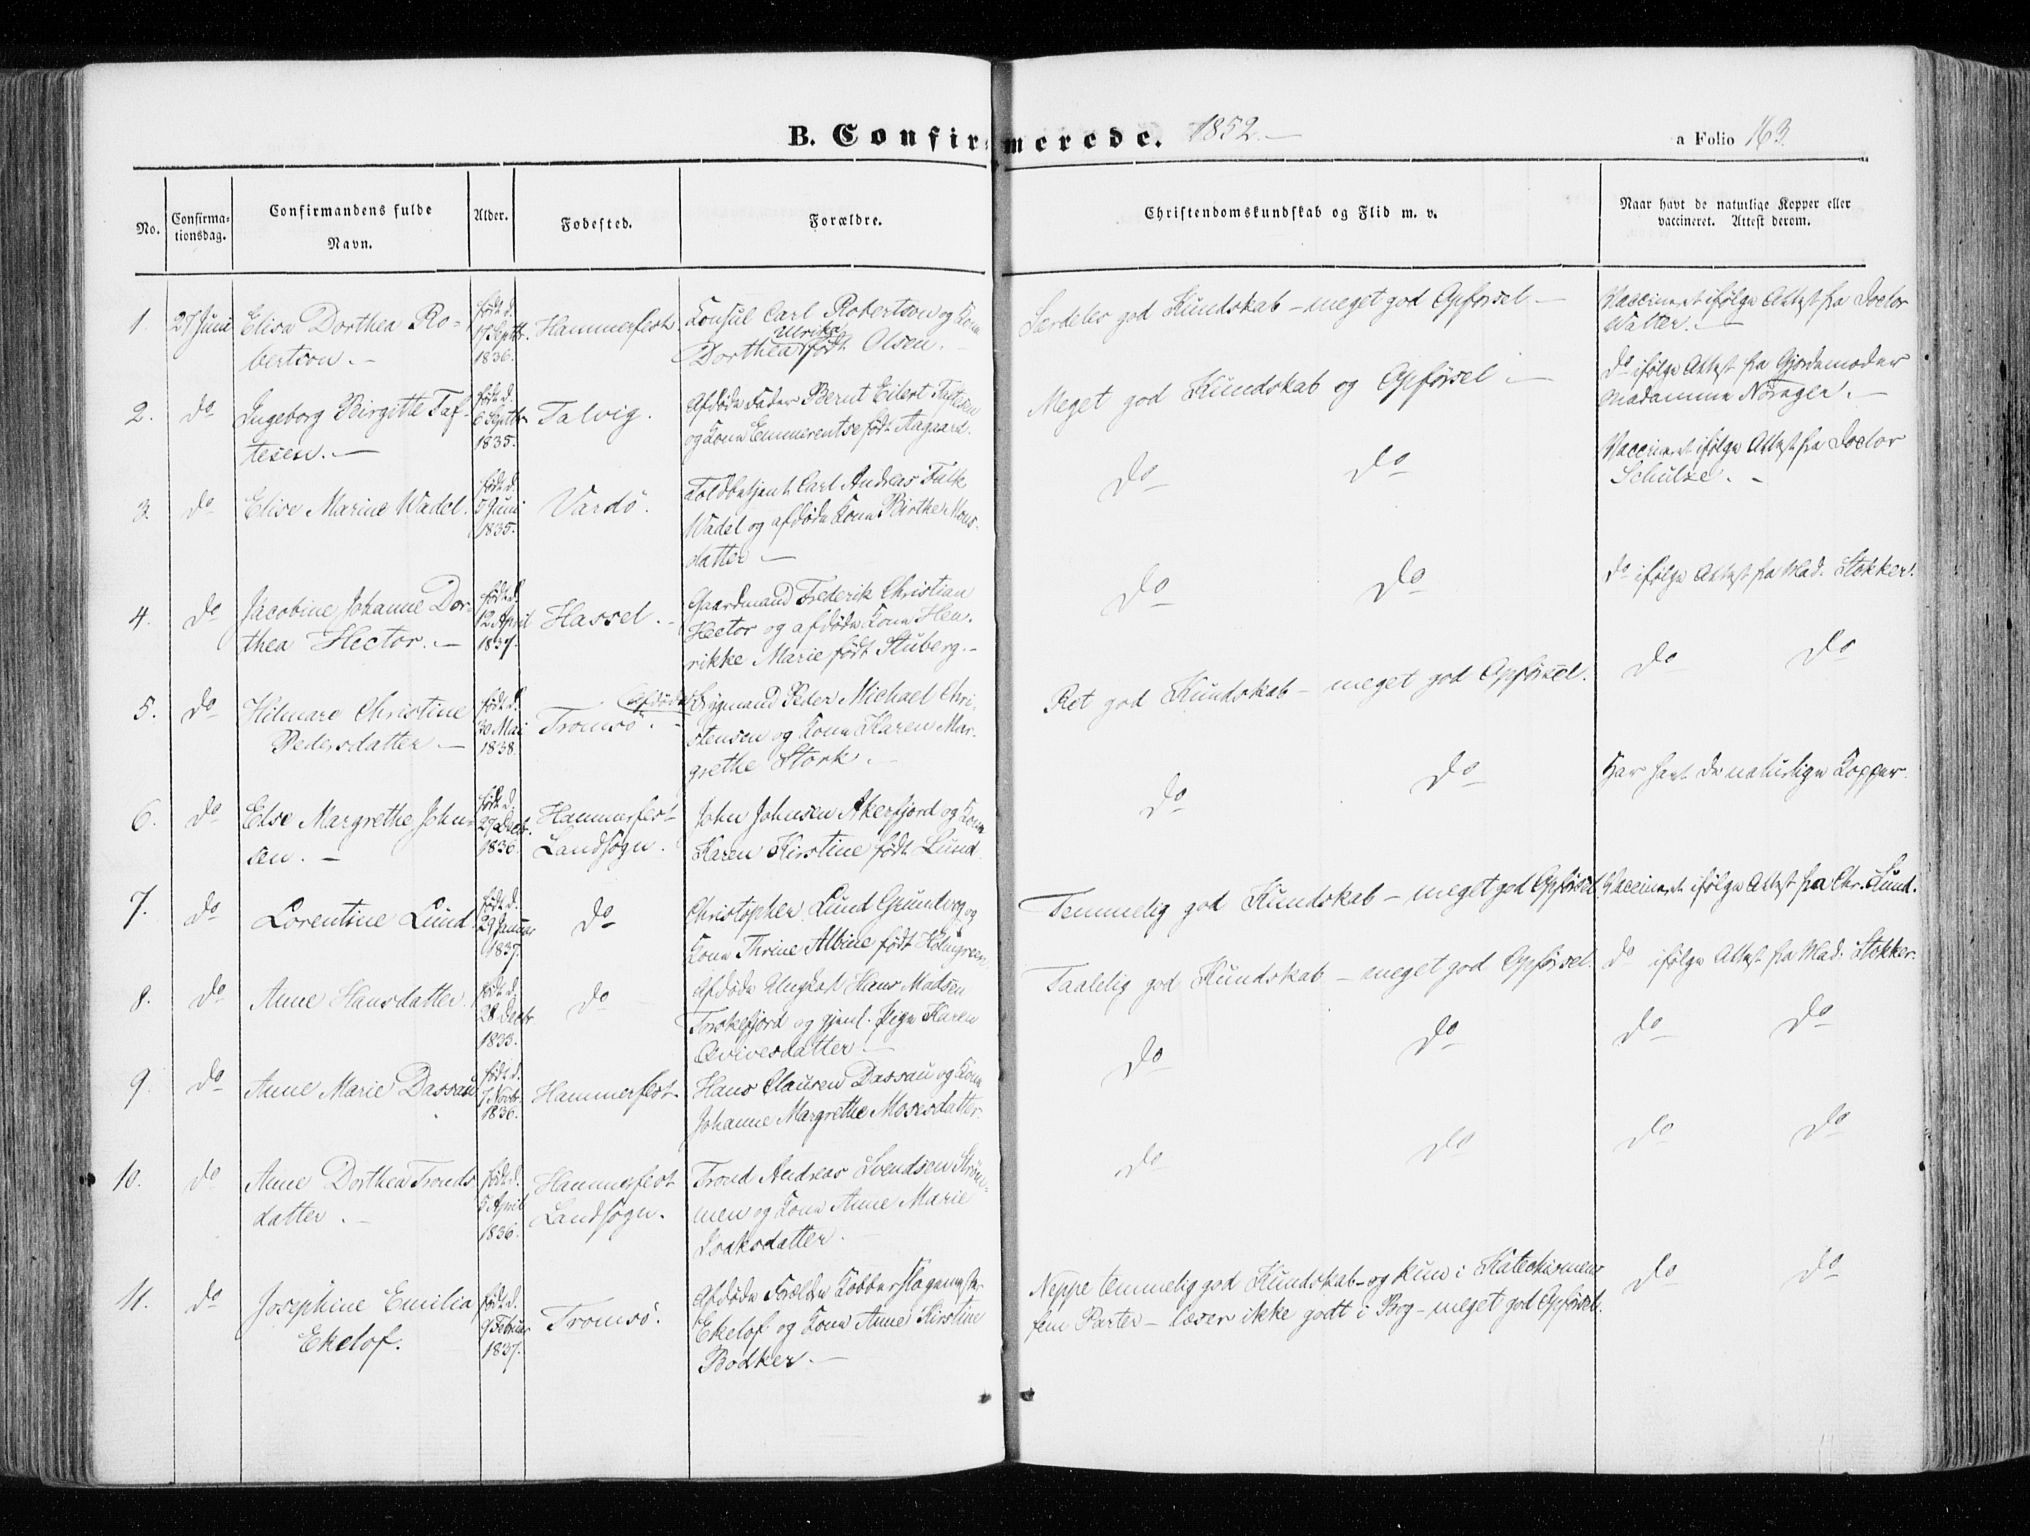 B. Confirmerede. 1852.—
a Folio 163.
No.
Confirma-
tionsdag.
Confirmandens fulde
Navn.
Alder.
Fødested.
Forældre.
Christendomskundskab og Flid m. v.
Naar havt de naturlige Kopper eller
vaccineret. Attest derom.
1. 27 Juni Elisa Dorthea Ro-
bertson. —
født d.
17 Septbr.
1836.
Hammerfest.
Consul Carl Robertson og Kone
Ulrika
Dorthea født Olsen. —
Særdeles god Kundskab — meget god Opførsel —
Vaccineret ifølge Attest fra Doctor
Walter. —
2. do Ingeborg Birgitte Taf-
tesen. —
født d.
6 Septbr
1835.
Talvig.
Afdøde Fader Bernt Eilert Taftesen
og Kone Emmerentse født Aagaard.
Meget god Kundskab og Opførsel —
do ifølge Attest fra Gjordemoder
Madamme Norager. —
3. do Elise Marine Wadel.
født d.
5 Juni
1835.
Vardö.
Toldbetjent Carl Andreas Falk
Wadel og afdøde Kone Birthe Mons-
datter —
do do
Vaccineret ifølge Attest fra Doctor
Schulze. —
4. do Jacobine Johanne Dor-
thea Hector. —
født d.
12 April
1837.
Hassel. —
Gaardmand Frederik Christian
Hector og afdøde Kone Hen-
rikke Marie født Stuberg. —
do do
do ifølge Attest fra Mad. Stokker.
5. do Hilmare Christine
Pedersdatter —
født d.
30 Mai
1838.
Tromsö. —
Afdøde
Peder Michael Chri-
stensen og Kone Karen Mar-
grethe Stork. —
Ret god Kundskab — meget god Opførsel.
do do
6. do Else Margrethe John-
sen. —
født d.
1836.
Hammerfest
Landsogn.
John Johnsen Akerfjord og Kone
Karen Kirstine født Lund.
do do
Har havt de naturlige Kopper.
7. do Lorentine Lund
født d.
29 Januar
1837.
do
Christopher Lund Grundvog og
Kone Thrine Albine født Holmgreen.
Temmelig god Kundskab — meget god Opførsel.
Vaccineret ifølge Attest fra Chr. Lund.
8. do Anne Hansdatter.
født d.
28 Decbr
1833.
do
Afdøde Ungkarl Hans Madsen
Torskefjord og gjent. Pige Karen
Taalelig god Kundskab — meget god Opførsel.
do ifølge Attest fra Mad. Stokker.
9. do Anne Marie Dassau
født d.
7 Novbr.
1836.
Hammerfest
Hans Clausen Dassau og Kone
Johanne Margrethe Mosesdatter.
do do
do do
10. do Anne Dorthea Tronds
datter. —
født d.
5 April
1836.
Hammerfest
Landsogn.
Trond Andreas Svendsen Ström-
men og Kone Anne Marie
do do
do do
11. do Josephine Emilia
Ekelof.
født d.
9 Februar
1837.
Tromsö.
Afdøde Forældre Kobberslagermester
Ekelof og Kone Anne Kirstine
Bodker. —
Neppe temmelig god Kundskab — og kun i Katechismens
fem Parter — læser ikke godt i Bog — meget god Opførsel.
do do